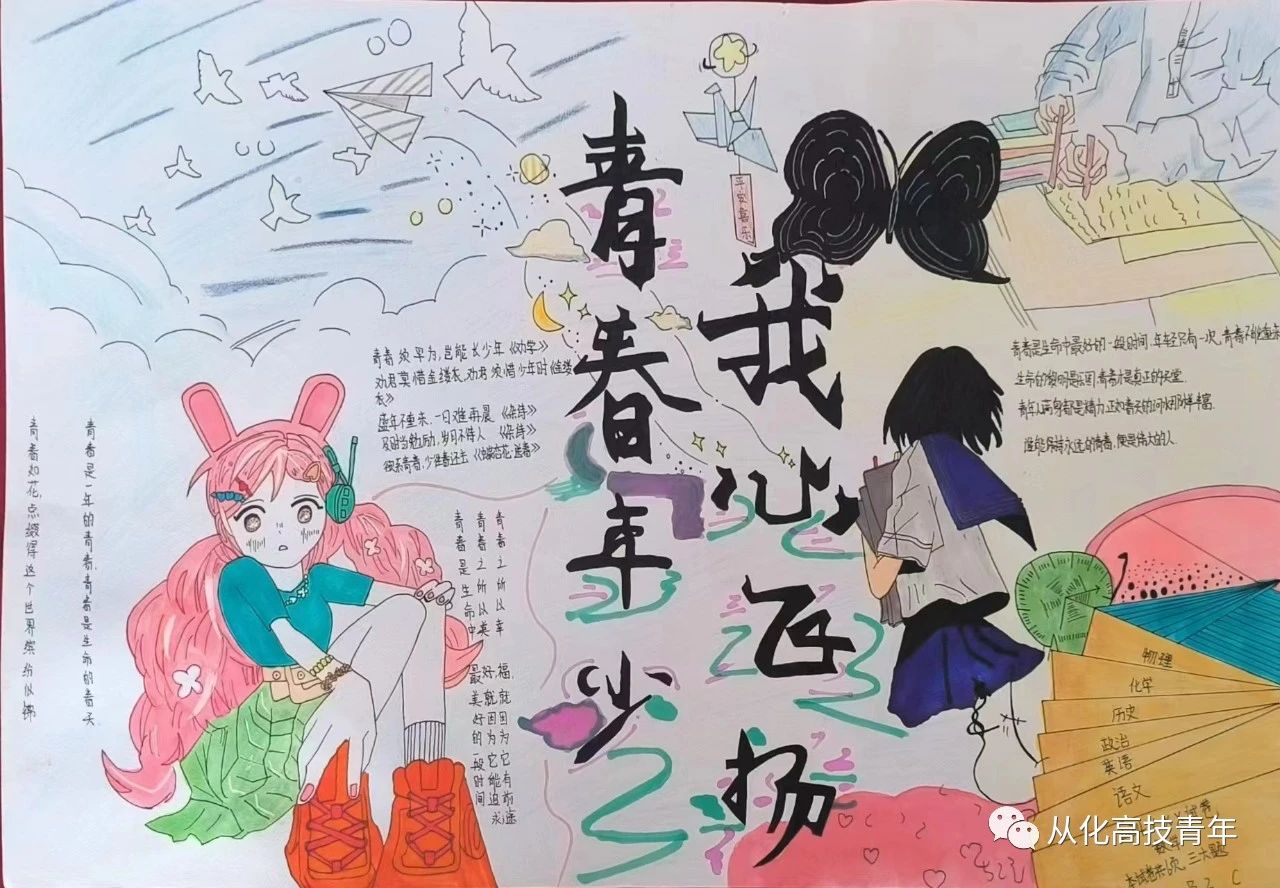 青春年少
我心飞扬
平安喜乐
青春须早为,岂能长少年《劝学》
劝君莫惜金缕衣,劝君须惜少年时《金缕
衣》
盛年不重来,一日难再晨《杂诗》
及时当勉励,岁月不待人《杂诗》
青春是一年的青春.青春是生命的春天
青春如花,点缀得这个世界缤纷似锦
青春之所以幸
青春之所以美
青春是生命中
福.就因为它有前途
好就因为它能追
最美好的一段时间
青春是生命中最好的一段时间.年轻只有一次,青春不能重来
生命的黎明是乐园,青春才是真正的天堂.
青年人满身都是精力.正如春天的河水那样丰富.
谁能保持永远的青春,便是伟大的人.
物理
化学
历史
政治
英语
语文
试卷
三大题
从化高技青年